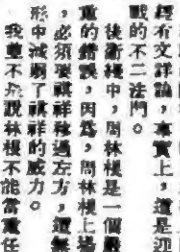 經有文詳論,事實上,這是迎
戰的不二法門。
後衛綫中,周林根是一個嚴
重的錯誤,因為,周林根上場
,必須要祺祥過左方,這無
形中減弱了祺祥的威力。
我並不是說林根不能當重任